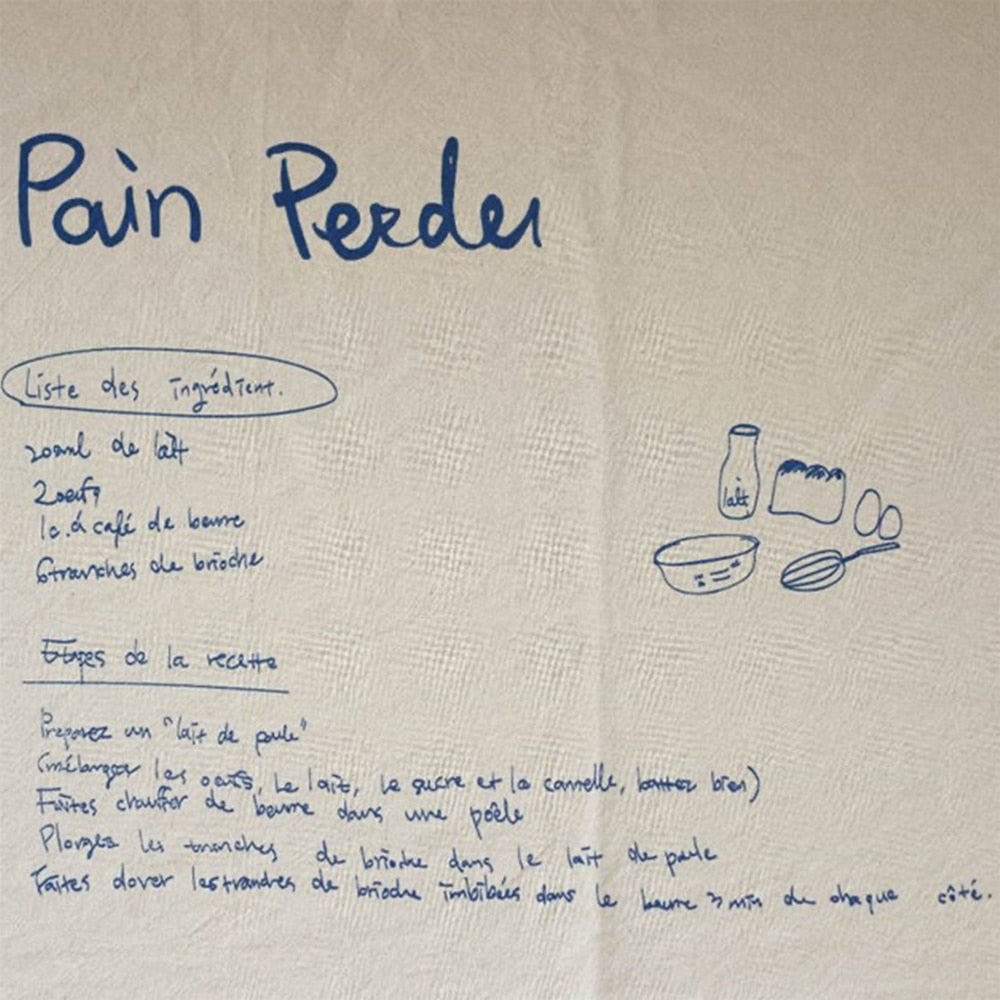 Pain Perdu
Liste des ingrédient.
200ml de lait
2oeufs
1c.à café de beurre
6tranches de brioche
lait
Etapes de la recette
Preparez un "lait de poule"
(mélanger les oeufs, le lait, le sucre et la cannelle, battez bien)
Faites chauffer de beurre dans une poêle
Plongez les tranches de brioche dans le lait de poule
Faites dorer les tranches de brioche imbibées dans le beurre 3 min de chaque côté.